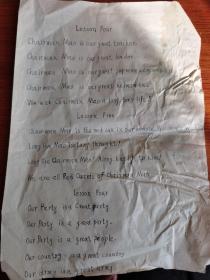 Lesson Four
Chairman Mao is our great teacher
Chairman Mao is our great leader
Chairman Mao is our great supreme commander
Chairman Mao is our great helmsman
We wish Chairman Mao a long, long life!
Lesson Five
Chairman Mao is the red sun in our
Long live Mao Zedong thought!
Long live Chairman Mao! A long, long life to him!
We are all Red Guards of Chairman Mao
Lesson Four
Our Party is a Great party.
Our Party is a great party.
Our Party is a great people.
Our country is a great country
Our army is a great army